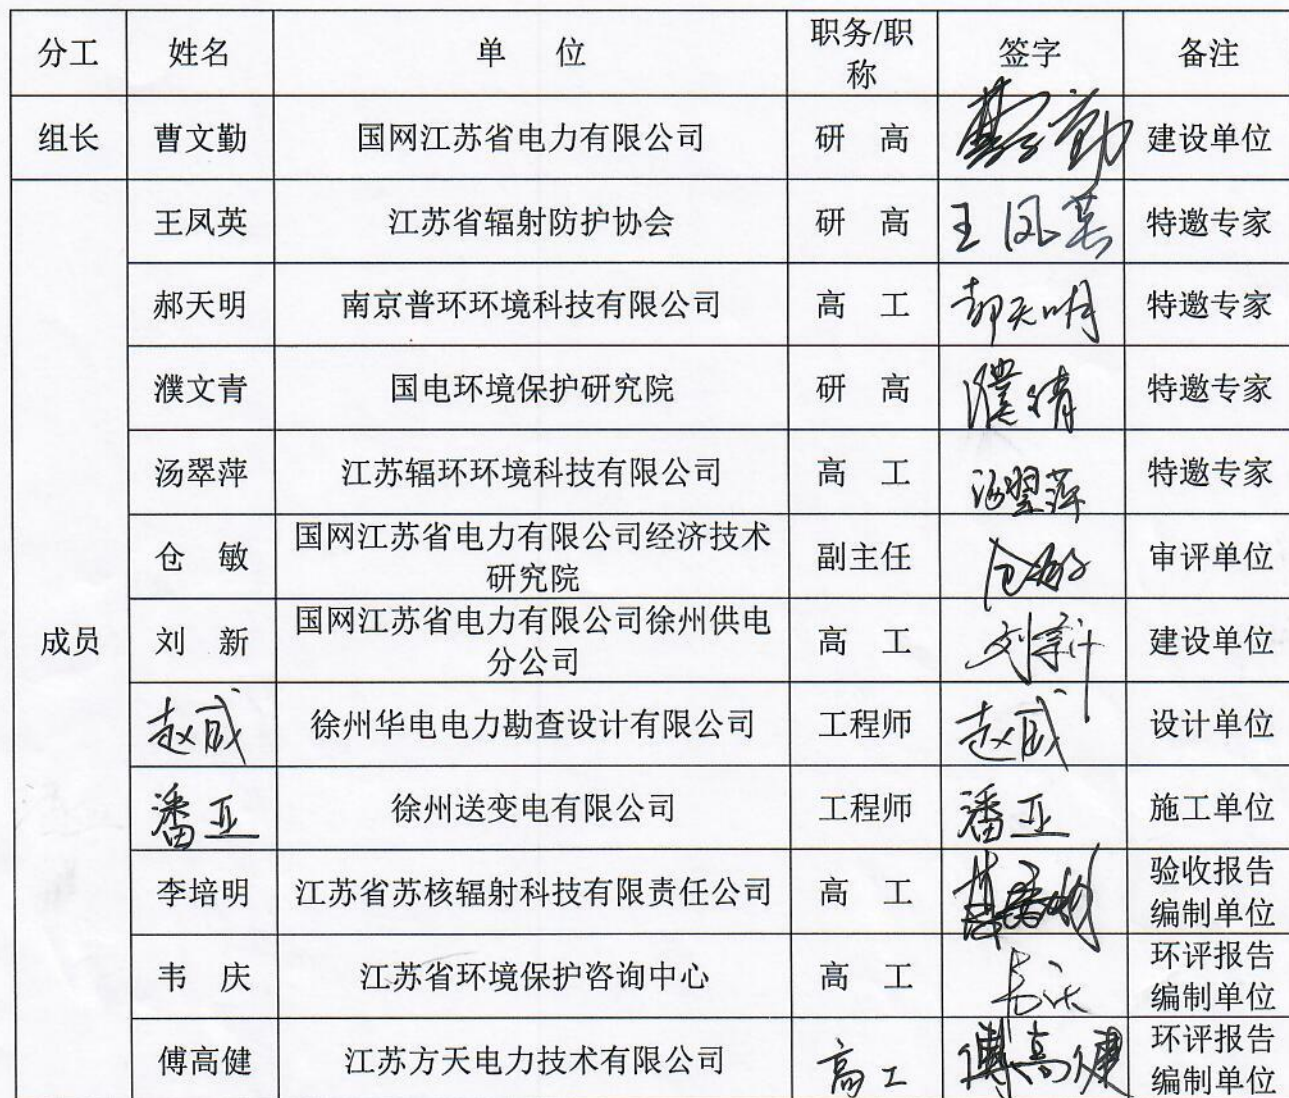 分工 姓名 单 位 职务/职称 签字 备注
组长 曹文勤 国网江苏省电力有限公司 研 高 建设单位
成员
王凤英 江苏省辐射防护协会 研 高 王凤英 特邀专家
郝天明 南京普环环境科技有限公司 高 工 郝天明 特邀专家
濮文青 国电环境保护研究院 研 高 特邀专家
汤翠萍 江苏辐环环境科技有限公司 高 工 汤翠萍 特邀专家
仓 敏 国网江苏省电力有限公司经济技术研究院 副主任 仓敏 审评单位
刘 新 国网江苏省电力有限公司徐州供电分公司 高 工 刘新 建设单位
赵威 徐州华电电力勘查设计有限公司 工程师 赵威 设计单位
潘亚 徐州送变电有限公司 工程师 潘亚 施工单位
李培明 江苏省苏核辐射科技有限责任公司 高 工 验收报告编制单位
韦 庆 江苏省环境保护咨询中心 高 工 环评报告编制单位
傅高健 江苏方天电力技术有限公司 高工 傅高健 环评报告编制单位